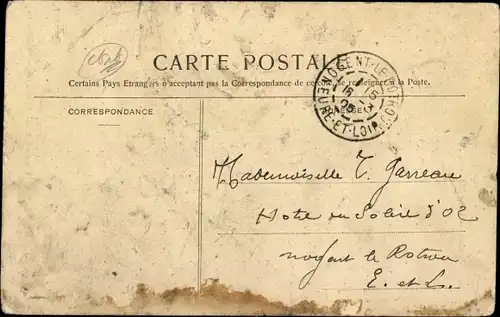 CARTE POSTALE
Certains Pays Etrangers n'acceptant pas la Correspondance de ce côté, se renseigner à la Poste.
CORRESPONDANCE
ADRESSE
NOGENT-LE-ROTROU
15
EURE-ET-LOIR
Mademoiselle T. Garreau
Hotel du Soleil d'Or
nogent le Rotrou
E. et L.